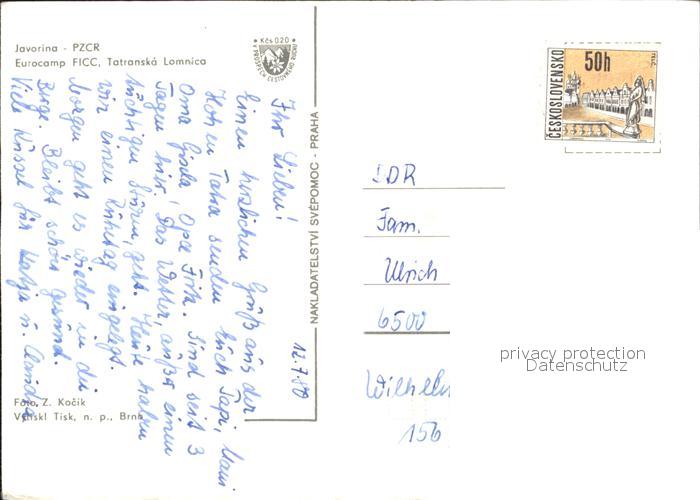 Javorina - PZCR
Eurocamp FICC, Tatranská Lomnica
Kčs 0.20
12.7.80
Ihr Lieben!
Einen herzlichen Gruß aus der
Hohen Tatra senden Euch Papi, Mami
Oma Gisela, Opa Fritz. Sind seit 3
Tagen hier. Das Wetter, außer einem
tüchtigen Sturm, geht. Heute haben
wir einen Ruhetag eingelegt.
Morgen geht es wieder in die
Berge. Bleibt schön gesund.
Viele Küssel für Katja u. Claudia
Foto, Z. Kočík
Vytiskl Tisk, n. p., Brno
NAKLADATELSTVÍ SVÉPOMOC - PRAHA
ČESKOSLOVENSKO
50h
TELČ
DDR
Fam.
Ulrich
6500
Wilhelm
156
privacy protection
Datenschutz